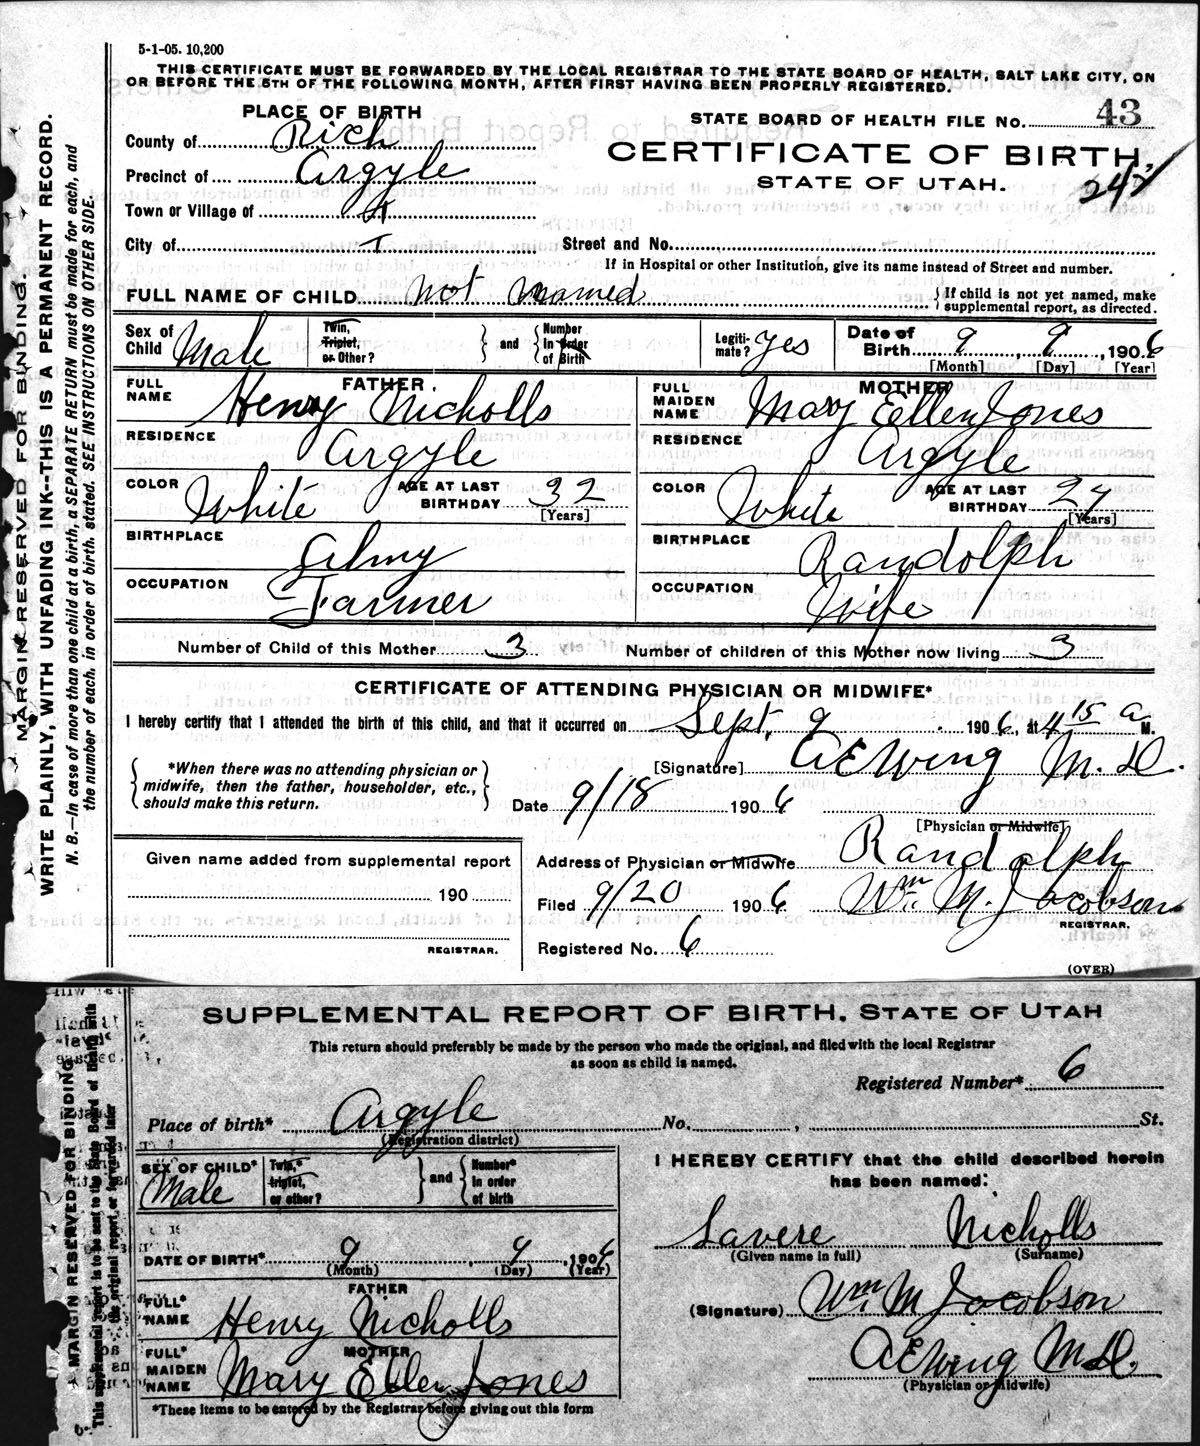 5-1-05. 10,200
THIS CERTIFICATE MUST BE FORWARDED BY THE LOCAL REGISTRAR TO THE STATE BOARD OF HEALTH, SALT LAKE CITY, ON
OR BEFORE THE 5TH OF THE FOLLOWING MONTH, AFTER FIRST HAVING BEEN PROPERLY REGISTERED.
PLACE OF BIRTH
STATE BOARD OF HEALTH FILE NO. 43
County of Rich
CERTIFICATE OF BIRTH,
Precinct of Argyle
STATE OF UTAH.
Town or Village of
City of
Street and No.
If in Hospital or other Institution, give its name instead of Street and number.
FULL NAME OF CHILD Not named { If child is not yet named, make supplemental report, as directed.
Sex of Child Male Twin, Triplet, or Other? } and { Number In Order of Birth Legitimate? yes Date of Birth 9, 9, 1906
[Month] [Day] [Year]
FULL NAME FATHER. Henry Nicholls
FULL MAIDEN NAME MOTHER Mary Ellen Jones
RESIDENCE Argyle
RESIDENCE Argyle
COLOR White AGE AT LAST BIRTHDAY 32 [Years]
COLOR White AGE AT LAST BIRTHDAY 27 [Years]
BIRTHPLACE Almy
BIRTHPLACE Randolph
OCCUPATION Farmer
OCCUPATION Wife
Number of Child of this Mother 3 Number of children of this Mother now living 3
CERTIFICATE OF ATTENDING PHYSICIAN OR MIDWIFE*
I hereby certify that I attended the birth of this child, and that it occurred on Sept. 9 1906, at 4 15 a M.
*When there was no attending physician or
midwife, then the father, householder, etc.,
should make this return.
[Signature] A E Wing M.D.
Date 9/18 1906
[Physician or Midwife]
Given name added from supplemental report
Address of Physician or Midwife Randolph
190
Filed 9/20 1906 Wm. M. Jacobson
REGISTRAR.
REGISTRAR.
Registered No. 6
(OVER)
MARGIN RESERVED FOR BINDING.
WRITE PLAINLY, WITH UNFADING INK--THIS IS A PERMANENT RECORD.
N. B.—In case of more than one child at a birth, a SEPARATE RETURN must be made for each, and
the number of each, in order of birth, stated. SEE INSTRUCTIONS ON OTHER SIDE.
SUPPLEMENTAL REPORT OF BIRTH, STATE OF UTAH
This return should preferably be made by the person who made the original, and filed with the local Registrar
as soon as child is named.
Registered Number* 6
Place of birth* Argyle No. , St.
(Registration district)
SEX OF CHILD* Male Twin,* triplet, or other? } and { Number* In order of birth
I HEREBY CERTIFY that the child described herein
has been named:
Lavere Nicholls
(Given name in full) (Surname)
DATE OF BIRTH* 9, 9, 1906
(Month) (Day) (Year)
FATHER
FULL* NAME Henry Nicholls
(Signature) Wm M Jacobson
MOTHER
FULL* MAIDEN NAME Mary Ellen Jones
A E Wing M.D.
(Physician or Midwife)
*These items to be entered by the Registrar before giving out this form
MARGIN RESERVED FOR BINDING
This supplemental report is to be sent to the State Board of Health with
the original report, or forwarded later